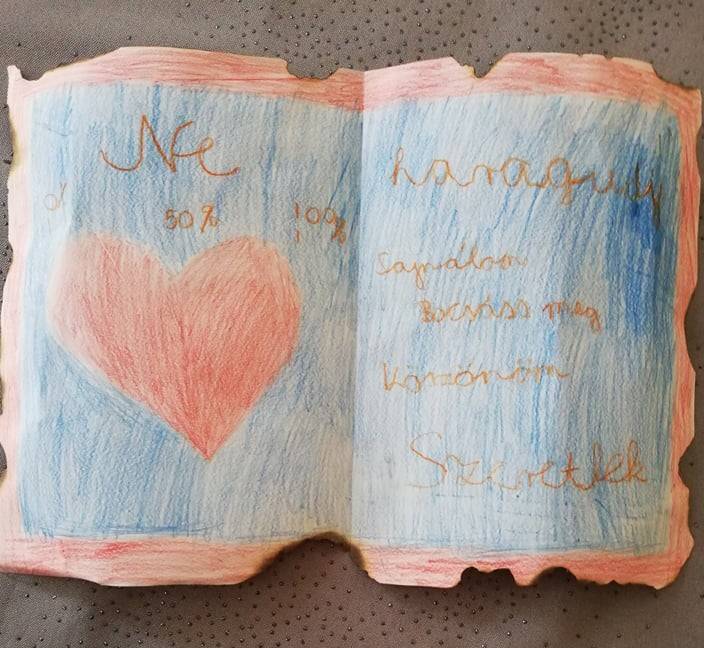 Ne
50% 100%
haragudj
Sajnálom
Bocsáss meg
Köszönöm
Szeretlek